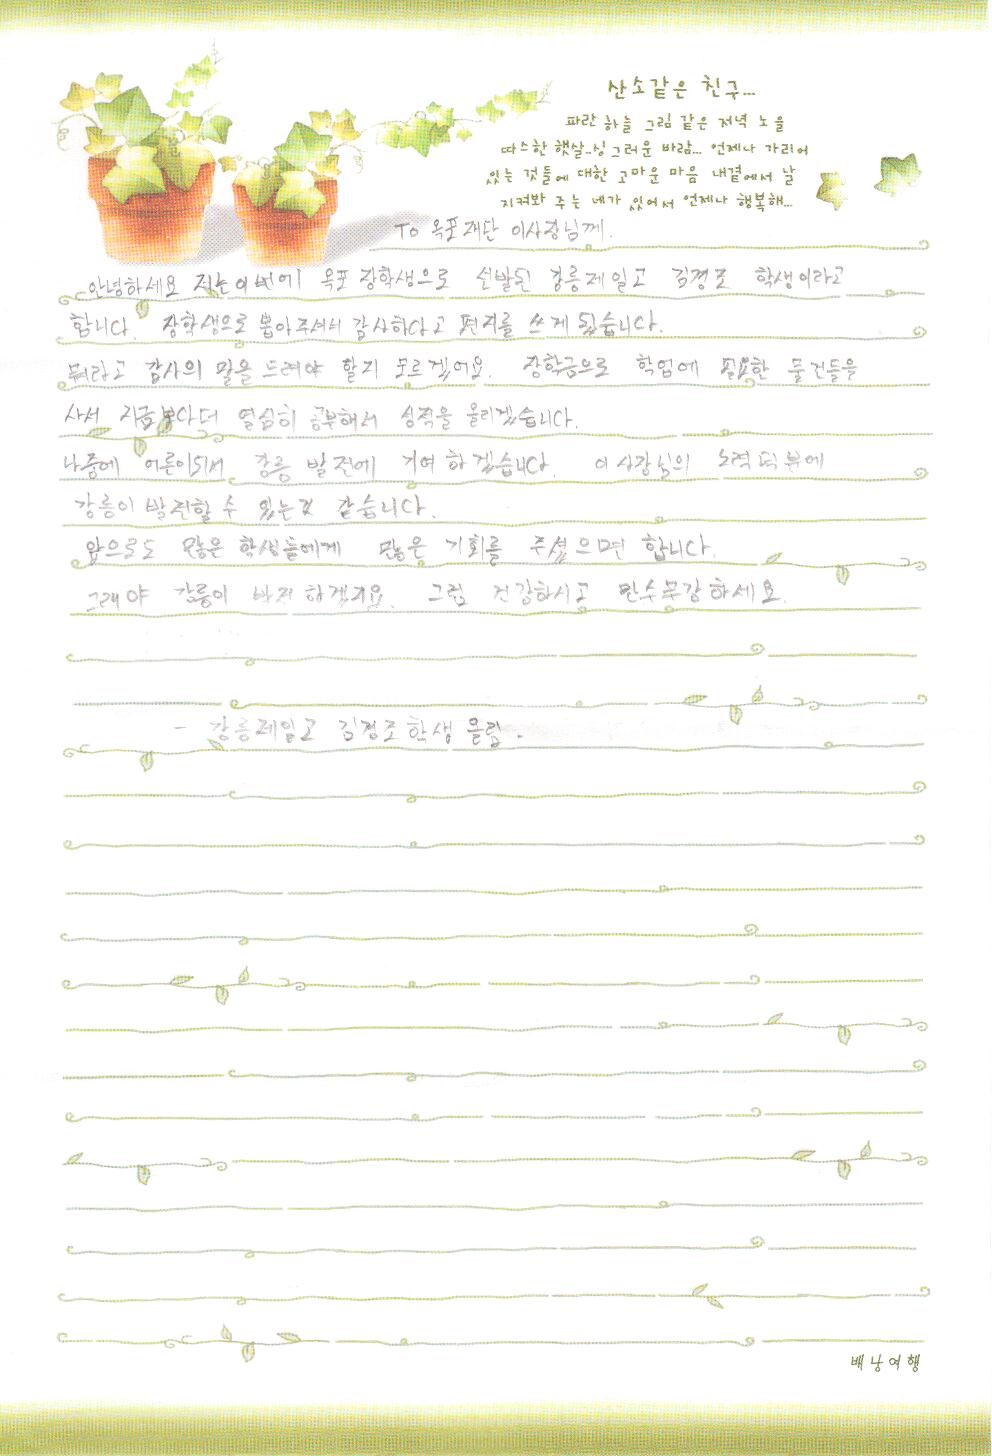 산소같은 친구...
파란 하늘 그림 같은 저녁 노을
따스한 햇살..싱그러운 바람... 언제나 가리어
있는 것들에 대한 고마운 마음 내곁에서 날
지켜봐 주는 네가 있어서 언제나 행복해...
TO 옥포재단 이사장님께.
안녕하세요 저는 이번에 옥포 장학생으로 선발된 강릉제일고 김경조 학생이라고
합니다. 장학생으로 뽑아주셔서 감사하다고 편지를 쓰게 됬습니다.
뭐라고 감사의 말을 드려야 할지 모르겠어요. 장학금으로 학업에 필요한 물건들을
사서 지금보다 더 열심히 공부해서 성적을 올리겠습니다.
나중에 어른이되서 강릉 발전에 기여 하겠습니다. 이사장님의 노력덕분에
강릉이 발전할 수 있는것 같습니다.
앞으로도 많은 학생들에게 많은 기회를 주셨으면 합니다.
그래야 강릉이 발전 하겠지요. 그럼 건강하시고 만수무강하세요.
- 강릉제일고 김경조학생 올림.
배낭여행